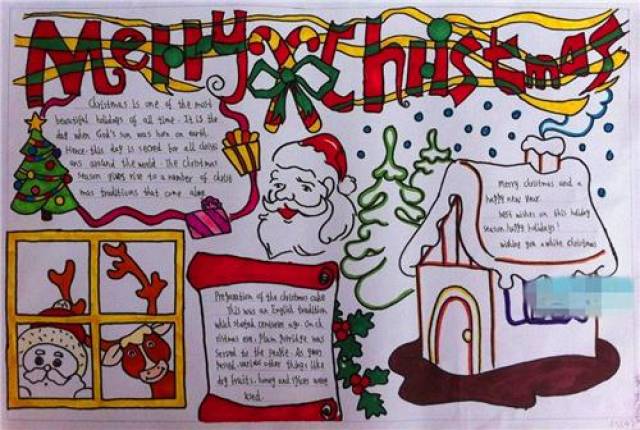 Merry Christmas
Christmas is one of the most
beautiful holidays of all time. It is the
day when God's son was born on earth.
Hence this day is secred for all christi
ans around the world. The Christmas
season gives rise to a number of christ
mas traditions that come alone
Merry christmas and a
happy new year.
best wishes on this holiday
season. happy holidays!
wishing you a white christmas
Preparation of the christmas cake
This was an English tradition
which started centuries ago. On ch
ristmas eve, Plum Porridge was
served to the people. As years
passed, various other things like
dry fruits, honey and spices were